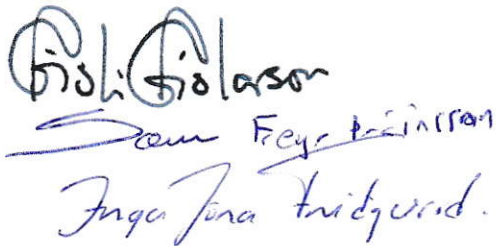 Gísli Gíslason
Freyr Þráinsson
Inga Jóna Friðgeirsd.